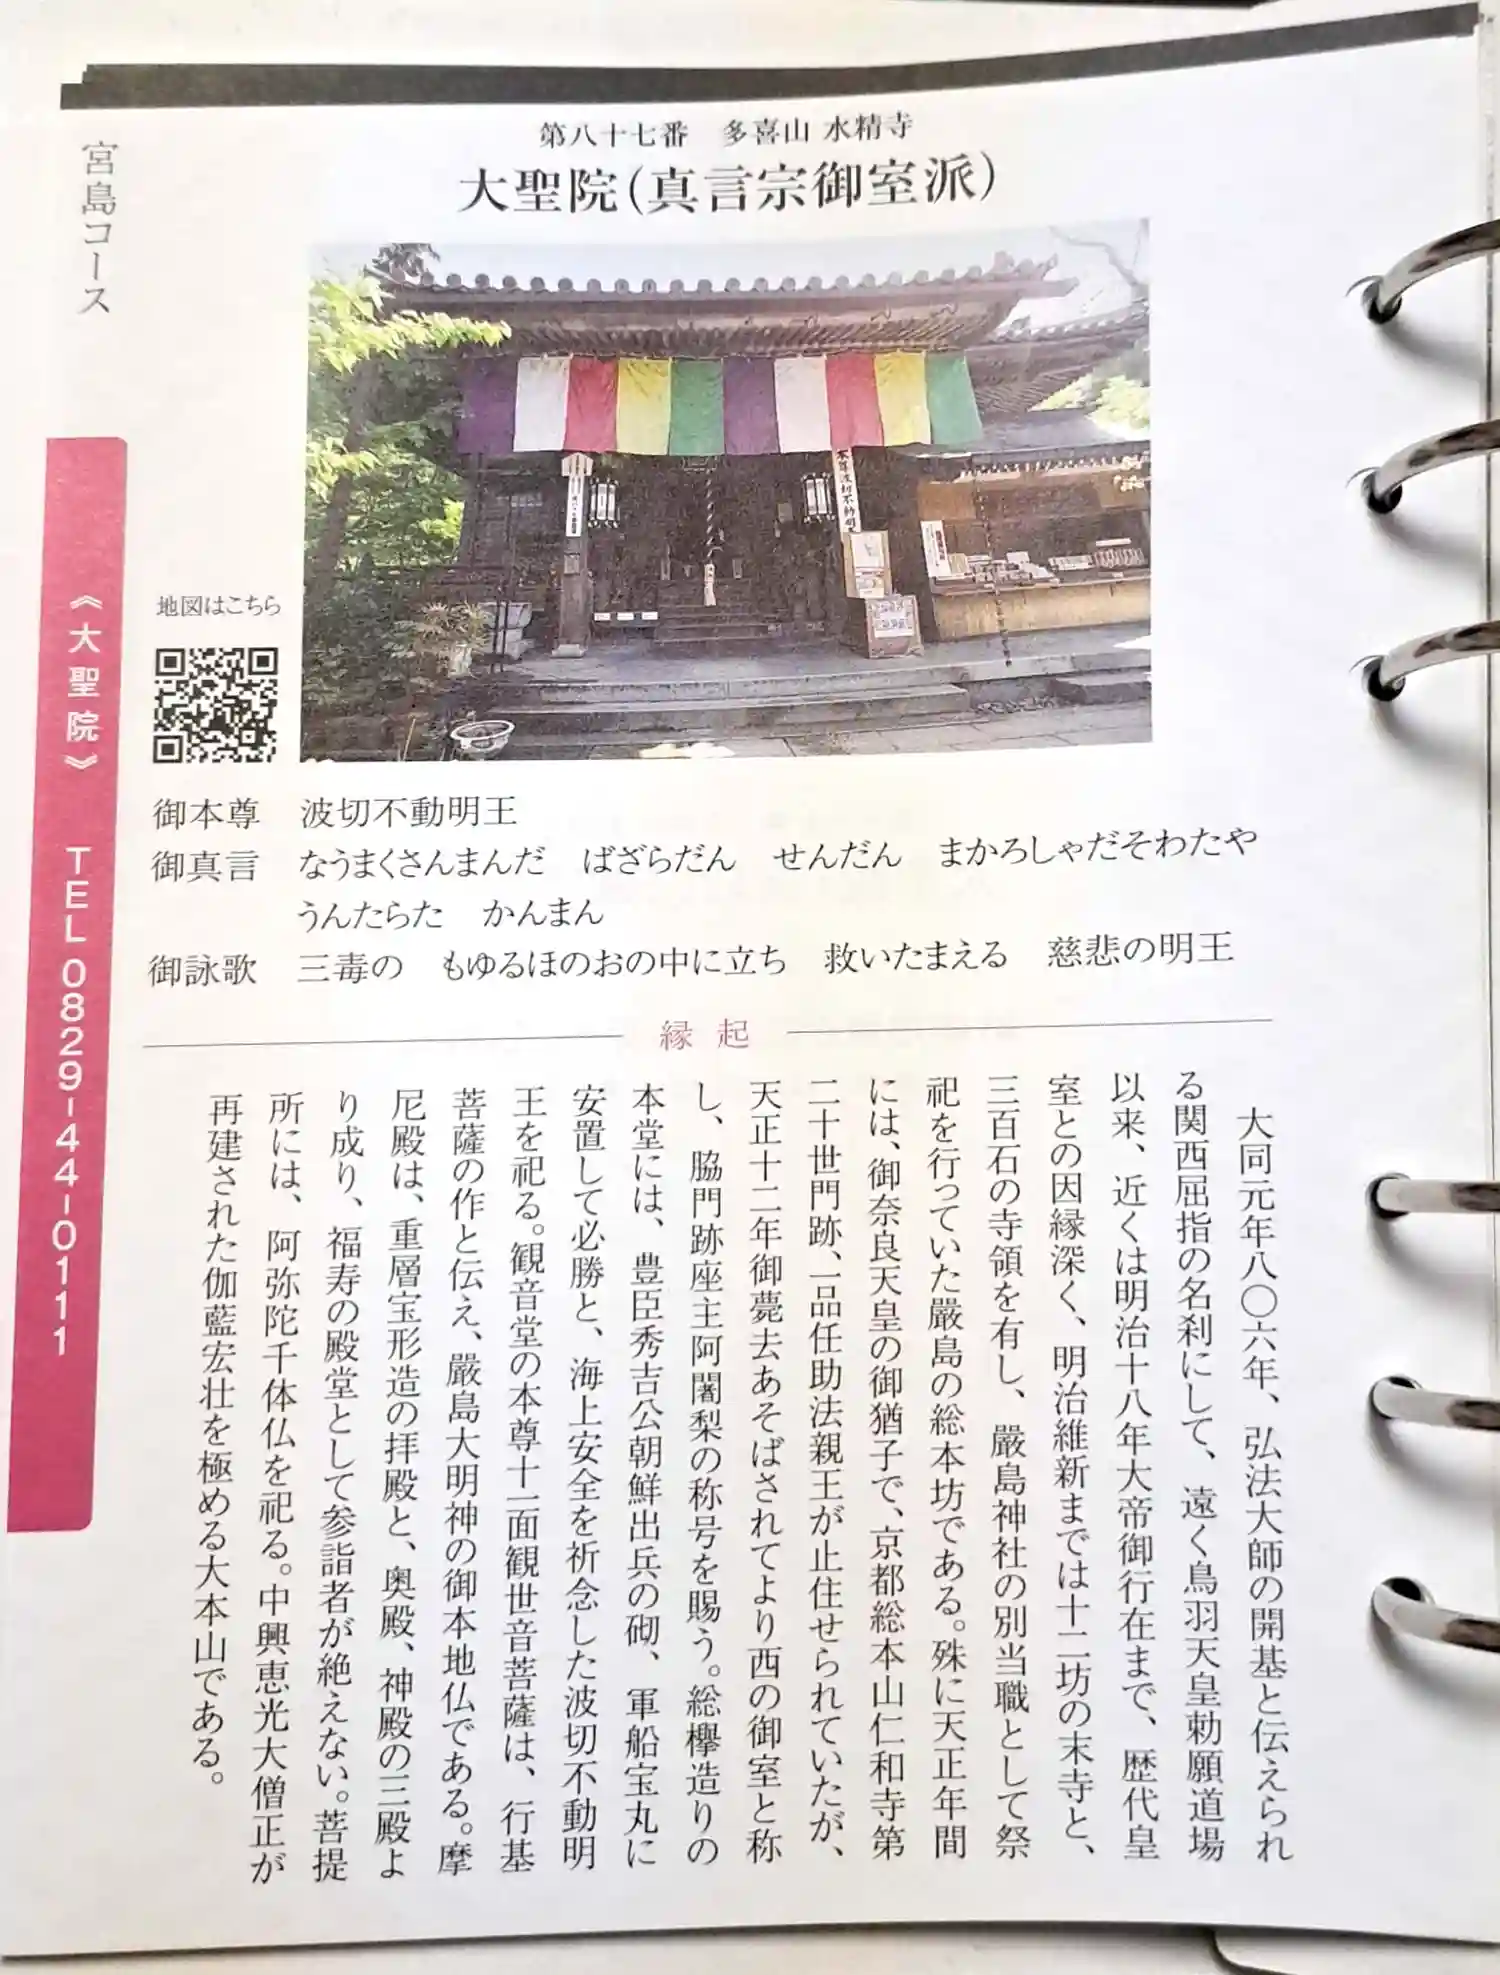 第八十七番　多喜山 水精寺
大聖院(真言宗御室派)
宮島コース
《大聖院》　TEL 0829-44-0111
地図はこちら
本尊波切不動明王
御本尊　波切不動明王
御真言　なうまくさんまんだ　ばざらだん　せんだん　まかろしゃだそわたや
うんたらた　かんまん
御詠歌　三毒の　もゆるほのおの中に立ち　救いたまえる　慈悲の明王
縁起
大同元年八〇六年、弘法大師の開基と伝えられ
る関西屈指の名刹にして、遠く鳥羽天皇勅願道場
以来、近くは明治十八年大帝御行在まで、歴代皇
室との因縁深く、明治維新までは十二坊の末寺と、
三百石の寺領を有し、嚴島神社の別当職として祭
祀を行っていた嚴島の総本坊である。殊に天正年間
には、御奈良天皇の御猶子で、京都総本山仁和寺第
二十世門跡、一品任助法親王が止住せられていたが、
天正十二年御薨去あそばされてより西の御室と称
し、脇門跡座主阿闍梨の称号を賜う。総欅造りの
本堂には、豊臣秀吉公朝鮮出兵の砌、軍船宝丸に
安置して必勝と、海上安全を祈念した波切不動明
王を祀る。観音堂の本尊十一面観世音菩薩は、行基
菩薩の作と伝え、嚴島大明神の御本地仏である。摩
尼殿は、重層宝形造の拝殿と、奥殿、神殿の三殿よ
り成り、福寿の殿堂として参詣者が絶えない。菩提
所には、阿弥陀千体仏を祀る。中興恵光大僧正が
再建された伽藍宏壮を極める大本山である。